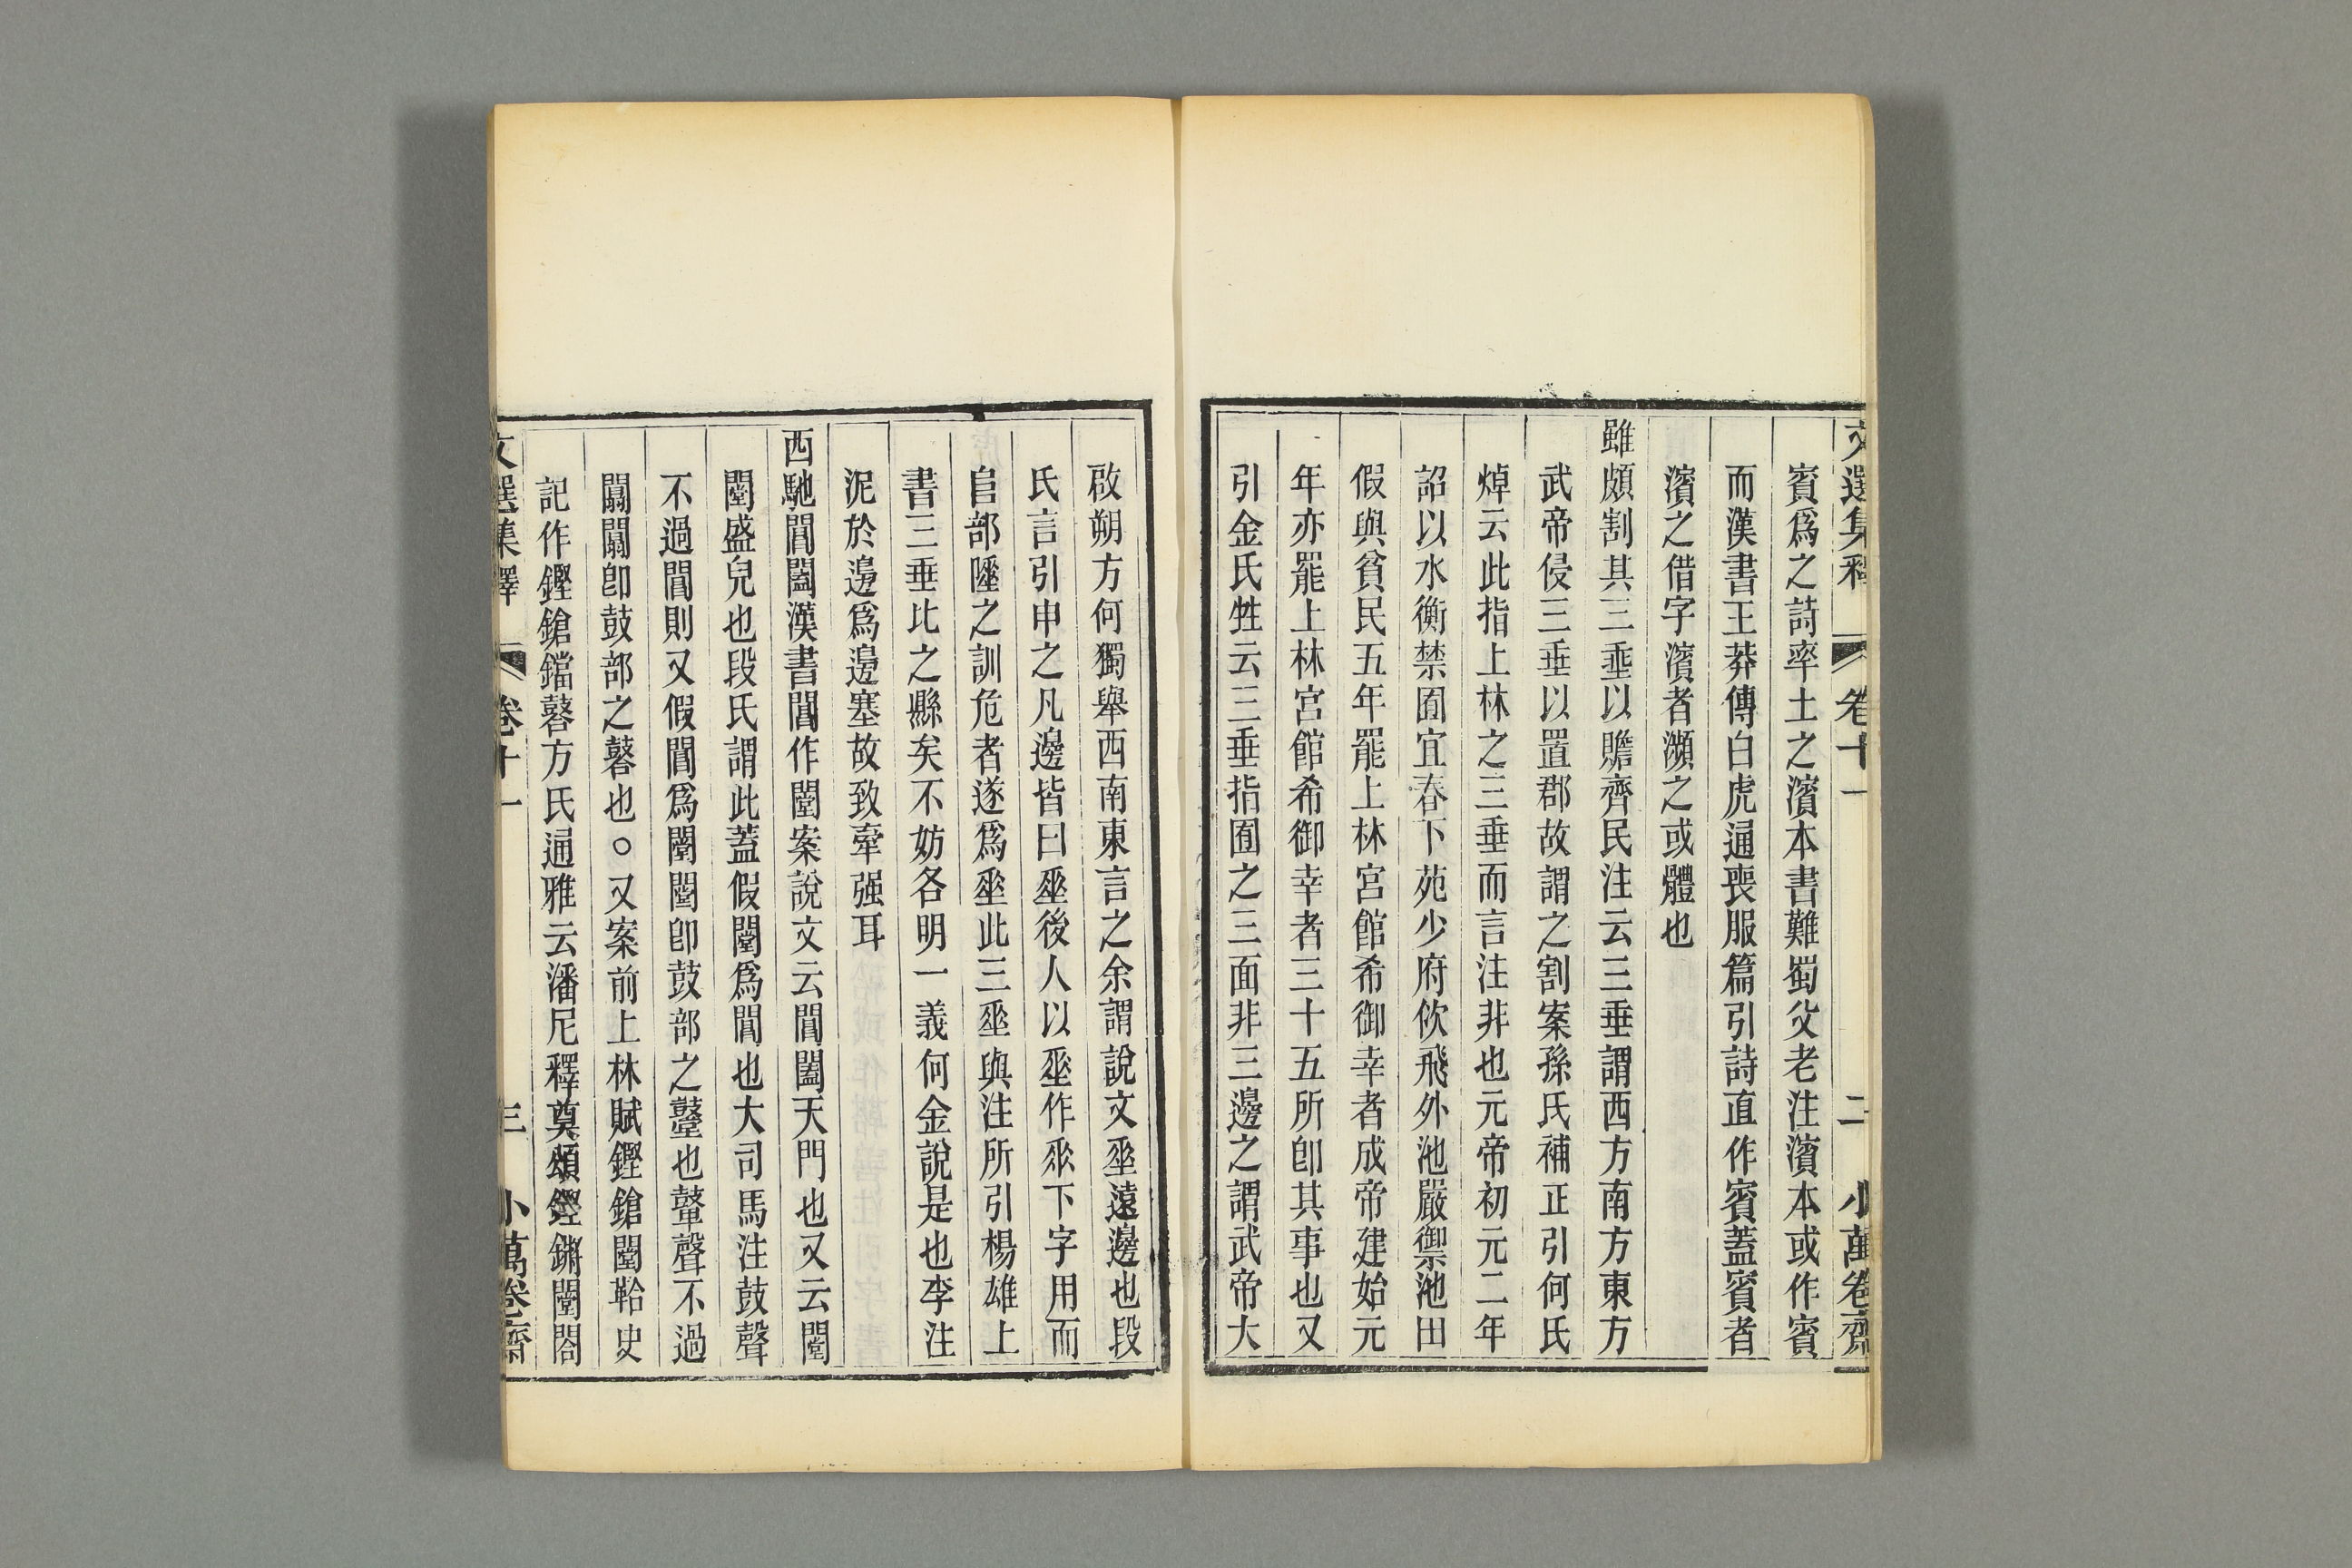 文選集釋 卷十一 二 小萬卷齋
賓爲之詩率土之濱本書難蜀父老注濱本或作賓
而漢書王莽傳白虎通喪服篇引詩直作賓蓋賓者
濱之借字濱者瀕之或體也
雖頗割其三垂以贍齊民注云三垂謂西方南方東方
武帝侵三垂以置郡故謂之割案孫氏補正引何氏
焯云此指上林之三垂而言注非也元帝初元二年
詔以水衡禁囿宜春下苑少府佽飛外池嚴籞池田
假與貧民五年罷上林宮館希御幸者成帝建始元
年亦罷上林宮館希御幸者三十五所卽其事也又
引金氏甡云三垂指囿之三面非三邊之謂武帝大
啟朔方何獨舉西南東言之余謂說文垂遠邊也段
氏言引申之凡邊皆曰垂後人以垂作𠂹下字用而
𨸏部陲之訓危者遂爲垂此三垂與注所引楊雄上
書三垂比之縣矣不妨各明一義何金說是也李注
泥於邊爲邊塞故致牽强耳
西馳閶闔漢書閶作闛案說文云閶闔天門也又云闛
闛盛皃也段氏謂此蓋假闛爲閶也大司馬注鼓聲
不過閶則又假閶爲闛闛卽鼓部之鼞也鼙聲不過
闒闒卽鼓部之鼛也○又案前上林賦鏗鎗闛鞈史
記作鏗鎗鐺鼛方氏通雅云潘尼釋奠頌鏗鏘闛閤
文選集釋 卷十一 三 小萬卷齋